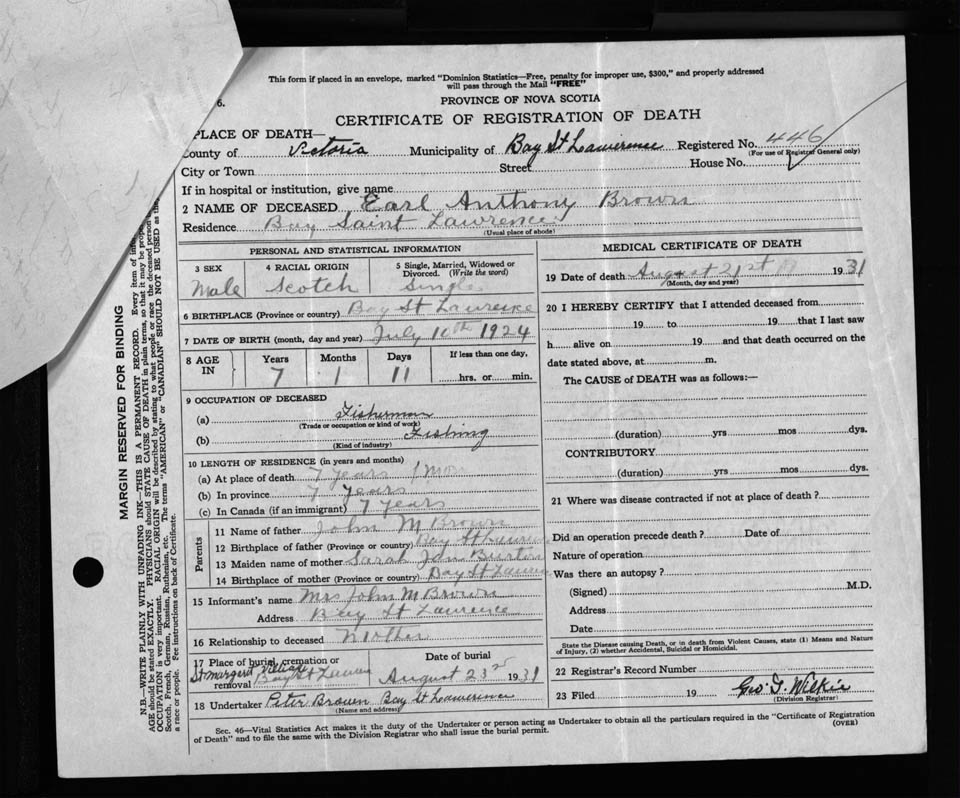 This form if placed in an envelope, marked "Dominion Statistics—Free, penalty for improper use, $300," and properly addressed
will pass through the Mail "FREE"
6.
PROVINCE OF NOVA SCOTIA
CERTIFICATE OF REGISTRATION OF DEATH
PLACE OF DEATH—
County of Victoria Municipality of Bay St Lawerence Registered No. 446
(For use of Registrar General only)
City or Town Street House No.
If in hospital or institution, give name
2 NAME OF DECEASED Earl Anthony Brown
Residence Bay Saint Lawrence
(Usual place of abode)
PERSONAL AND STATISTICAL INFORMATION
3 SEX 4 RACIAL ORIGIN 5 Single, Married, Widowed or
Divorced. (Write the word)
Male Scotch Single
6 BIRTHPLACE (Province or country) Bay St
7 DATE OF BIRTH (month, day and year) July 10th 1924
8 AGE IN Years Months Days If less than one day,
7 1 11 hrs. or min.
9 OCCUPATION OF DECEASED
(a) Fisherman
(Trade or occupation or kind of work)
(b) Fishing
(Kind of industry)
10 LENGTH OF RESIDENCE (in years and months)
(a) At place of death 7 years 1 Mon
(b) In province 7 years
(c) In Canada (if an immigrant) 7 years
Parents
11 Name of father John M Brown
12 Birthplace of father (Province or country) Bay St
13 Maiden name of mother Sarah Jan Burton
14 Birthplace of mother (Province or country) Bay St
15 Informant's name Mrs John M Brown
Address Bay St Lawrence
16 Relationship to deceased Mother
17 Place of burial, cremation or Date of burial
removal St Margret Village Bay St August 23rd 1931
18 Undertaker Peter Brown Bay St Lawerence
(Name and address)
MEDICAL CERTIFICATE OF DEATH
19 Date of death August 21st 1931
(Month, day and year)
20 I HEREBY CERTIFY that I attended deceased from
19 to 19 that I last saw
h alive on 19 and that death occurred on the
date stated above, at m.
The CAUSE of DEATH was as follows:—
(duration) yrs mos dys.
CONTRIBUTORY
(duration) yrs mos dys.
21 Where was disease contracted if not at place of death?
Did an operation precede death? Date of
Nature of operation
Was there an autopsy?
(Signed) M.D.
Address
Date
State the Disease causing Death, or in death from Violent Causes, state (1) Means and Nature
of Injury, (2) whether Accidental, Suicidal or Homicidal.
22 Registrar's Record Number
23 Filed 19 Geo. G. Wilkie
(Division Registrar)
Sec. 46—Vital Statistics Act makes it the duty of the Undertaker or person acting as Undertaker to obtain all the particulars required in the "Certificate of Registration
of Death" and to file the same with the Division Registrar who shall issue the burial permit.
(OVER)
MARGIN RESERVED FOR BINDING
N.B.—WRITE PLAINLY WITH UNFADING INK—THIS IS A PERMANENT RECORD. Every item of
AGE should be stated EXACTLY. PHYSICIANS should STATE CAUSE OF DEATH in plain terms, so that it may be
OCCUPATION is very important. RACIAL ORIGIN will be described by stating to what people or race the deceased person
Scotch, French, German, Russian, Ruthenian, etc. The terms "AMERICAN" or "CANADIAN" SHOULD NOT BE USED as
a race or people. Fee instructions on back of Certificate.